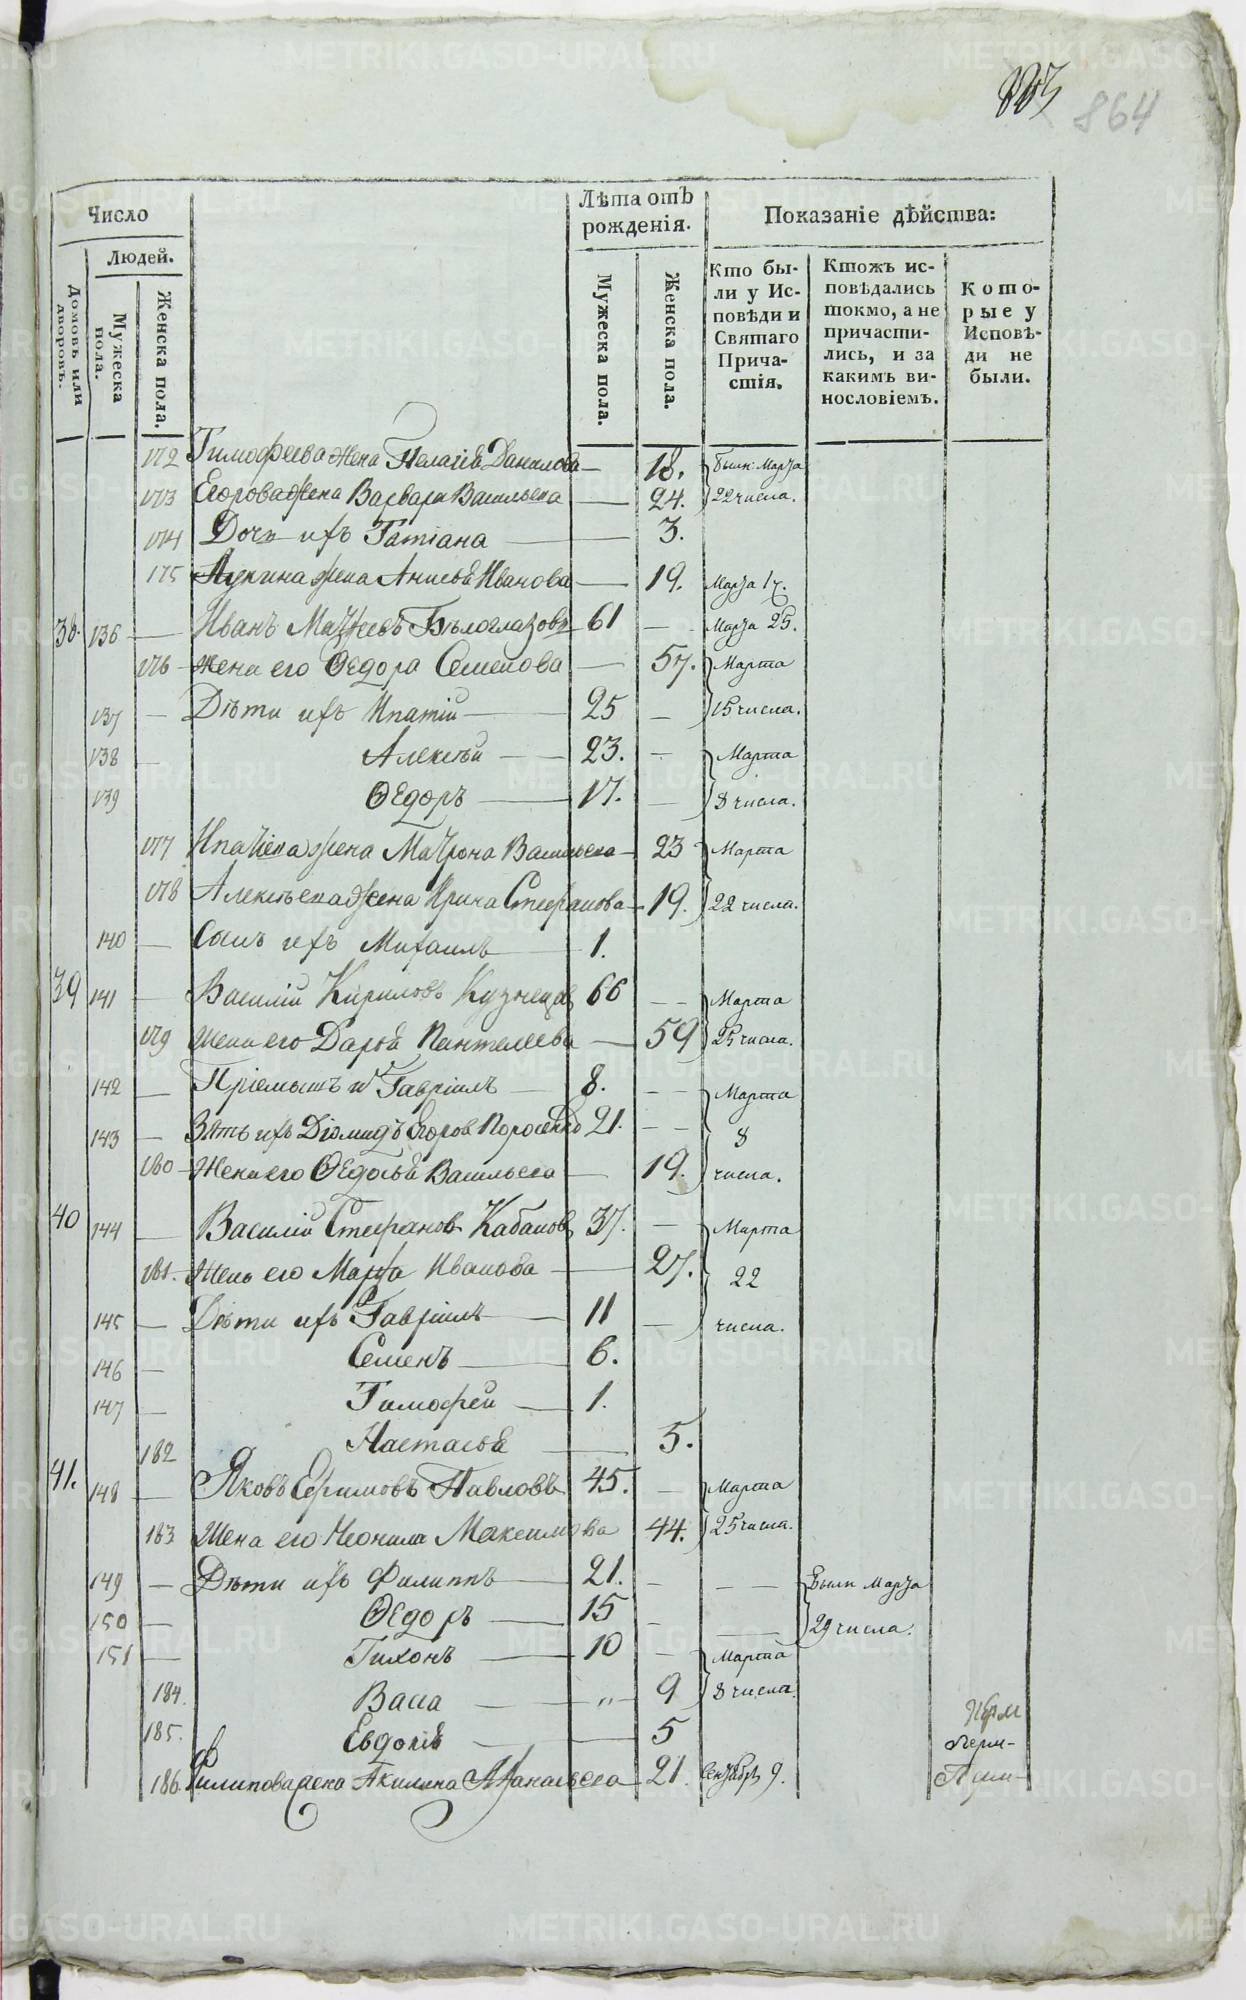 864
Число
Людей.
Домовъ или дворовъ.
Мужеска пола.
Женска пола.
Лѣта отъ рожденія.
Мужеска пола.
Женска пола.
Показаніе дѣйства:
Кто бы-
ли у Ис-
повѣди и
Святаго
Прича-
стія.
Ктожъ ис-
повѣдались
токмо, а не
причасти-
лись, и за
какимъ ви-
нословіемъ.
Кото-
рые у
Исповѣ-
ди не
были.
172 Тимофеева жена Пелагія Данилова — 18. были Марта
173 Егорова жена Варвара Васильева — 24. 22 числа.
174 Дочь ихъ Татіана — 3.
175 Лукина жена Анисья Иванова — 19. Марта 17.
38. 136 — Иванъ Матѳеевъ Бѣлоглазовъ 61 — Марта 25.
176 жена его Ѳедора Семенова — 57. Марта
137 — Дѣти ихъ Ипатій — 25 — 15 числа.
138 — Алексѣй — 23. — Марта
139 Ѳедоръ — 17. — 8 числа.
177 Ипатіева жена Матрона Васильева — 23 Марта
178 Алексѣева жена Ирина Стефанова — 19. 22 числа.
140 — Сынъ ихъ Михаилъ — 1.
39 141 — Василій Кириловъ Кузнецовъ 66 — — Марта
179 Жена его Дарья Пантелеева — 59 25 числа.
142 — Пріемышъ Гавріилъ — 8. — — Марта
143 — Зять ихъ Діомидъ Егоровъ 21. — — 8
180 Жена его Ѳедосья Васильева — 19. числа.
40 144 — Василій Стефановъ Кабановъ 37. — Марта
181. Жена его Марѳа Иванова — 27. 22
145 — Дѣти ихъ Гавріилъ — 11 — числа.
146 — Семенъ — 6.
147 — Тимофей — 1.
182 Настасья — 5.
41. 148 — Яковъ Ефимовъ Павловъ 45. — Марта
183 Жена его Неонила Максимова 44. 25 числа.
149 — Дѣти ихъ Филиппъ — 21. — — — были Марта
150 — Ѳедоръ — 15 — — 29 числа.
151 — Тихонъ — 10 — Марта
184. Васса — „ — 9 8 числа.
185. Евдокія — 5
186. Филипова жена Акилина Аѳанасьева — 21. Сентября 9.
METRIKI.GASO-URAL.RU